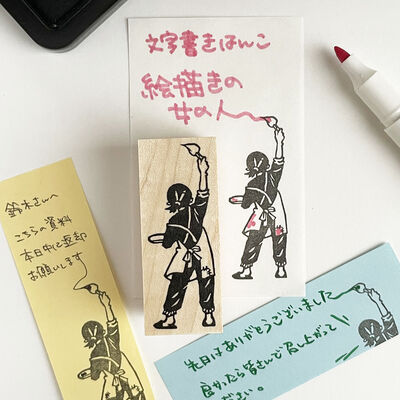 文字書きはんこ
絵描きの
女の人
鈴木さんへ
こちらの資料
本日中に返却
お願いします
先日はありがとうございました
良かったら皆さんで召し上がって
ください。